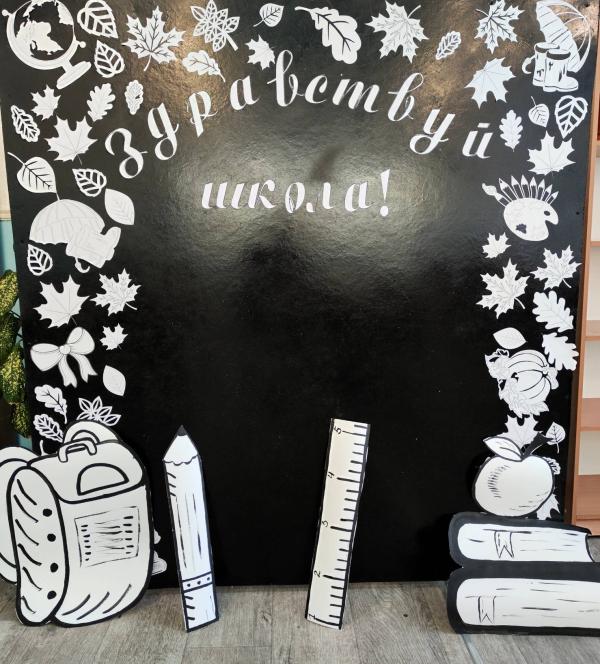 Здравствуй
школа!
5
4
3
2
1